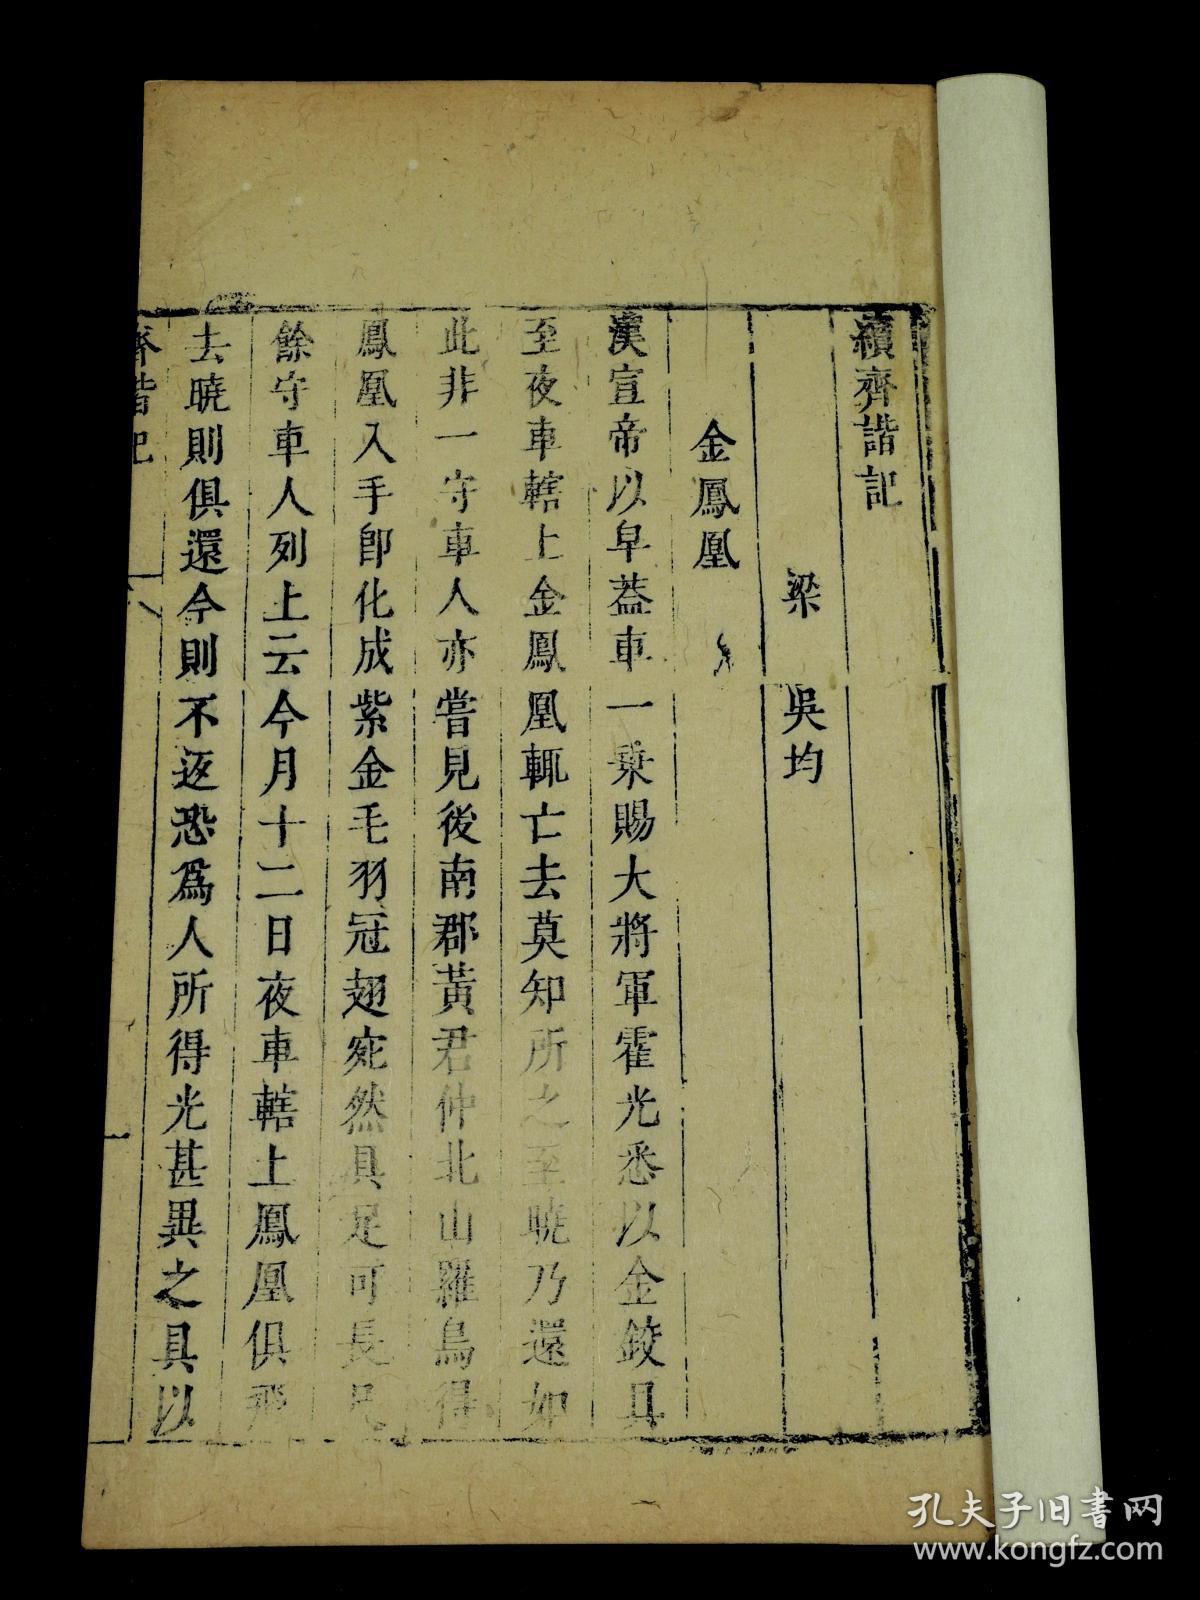 續齊諧記
梁 吳均
金鳳凰
漢宣帝以皁蓋車一乗賜大將軍霍光悉以金鉸具
至夜車轄上金鳳凰輒亡去莫知所之至曉乃還如
此非一守車人亦嘗見後南郡黃君仲北山羅鳥得
鳳凰入手卽化成紫金毛羽冠翅宛然具足可長尺
餘守車人列上云今月十二日夜車轄上鳳凰俱飛
去曉則俱還今則不返恐爲人所得光甚異之具以
齊諧記
孔夫子旧書网
www.kongfz.com